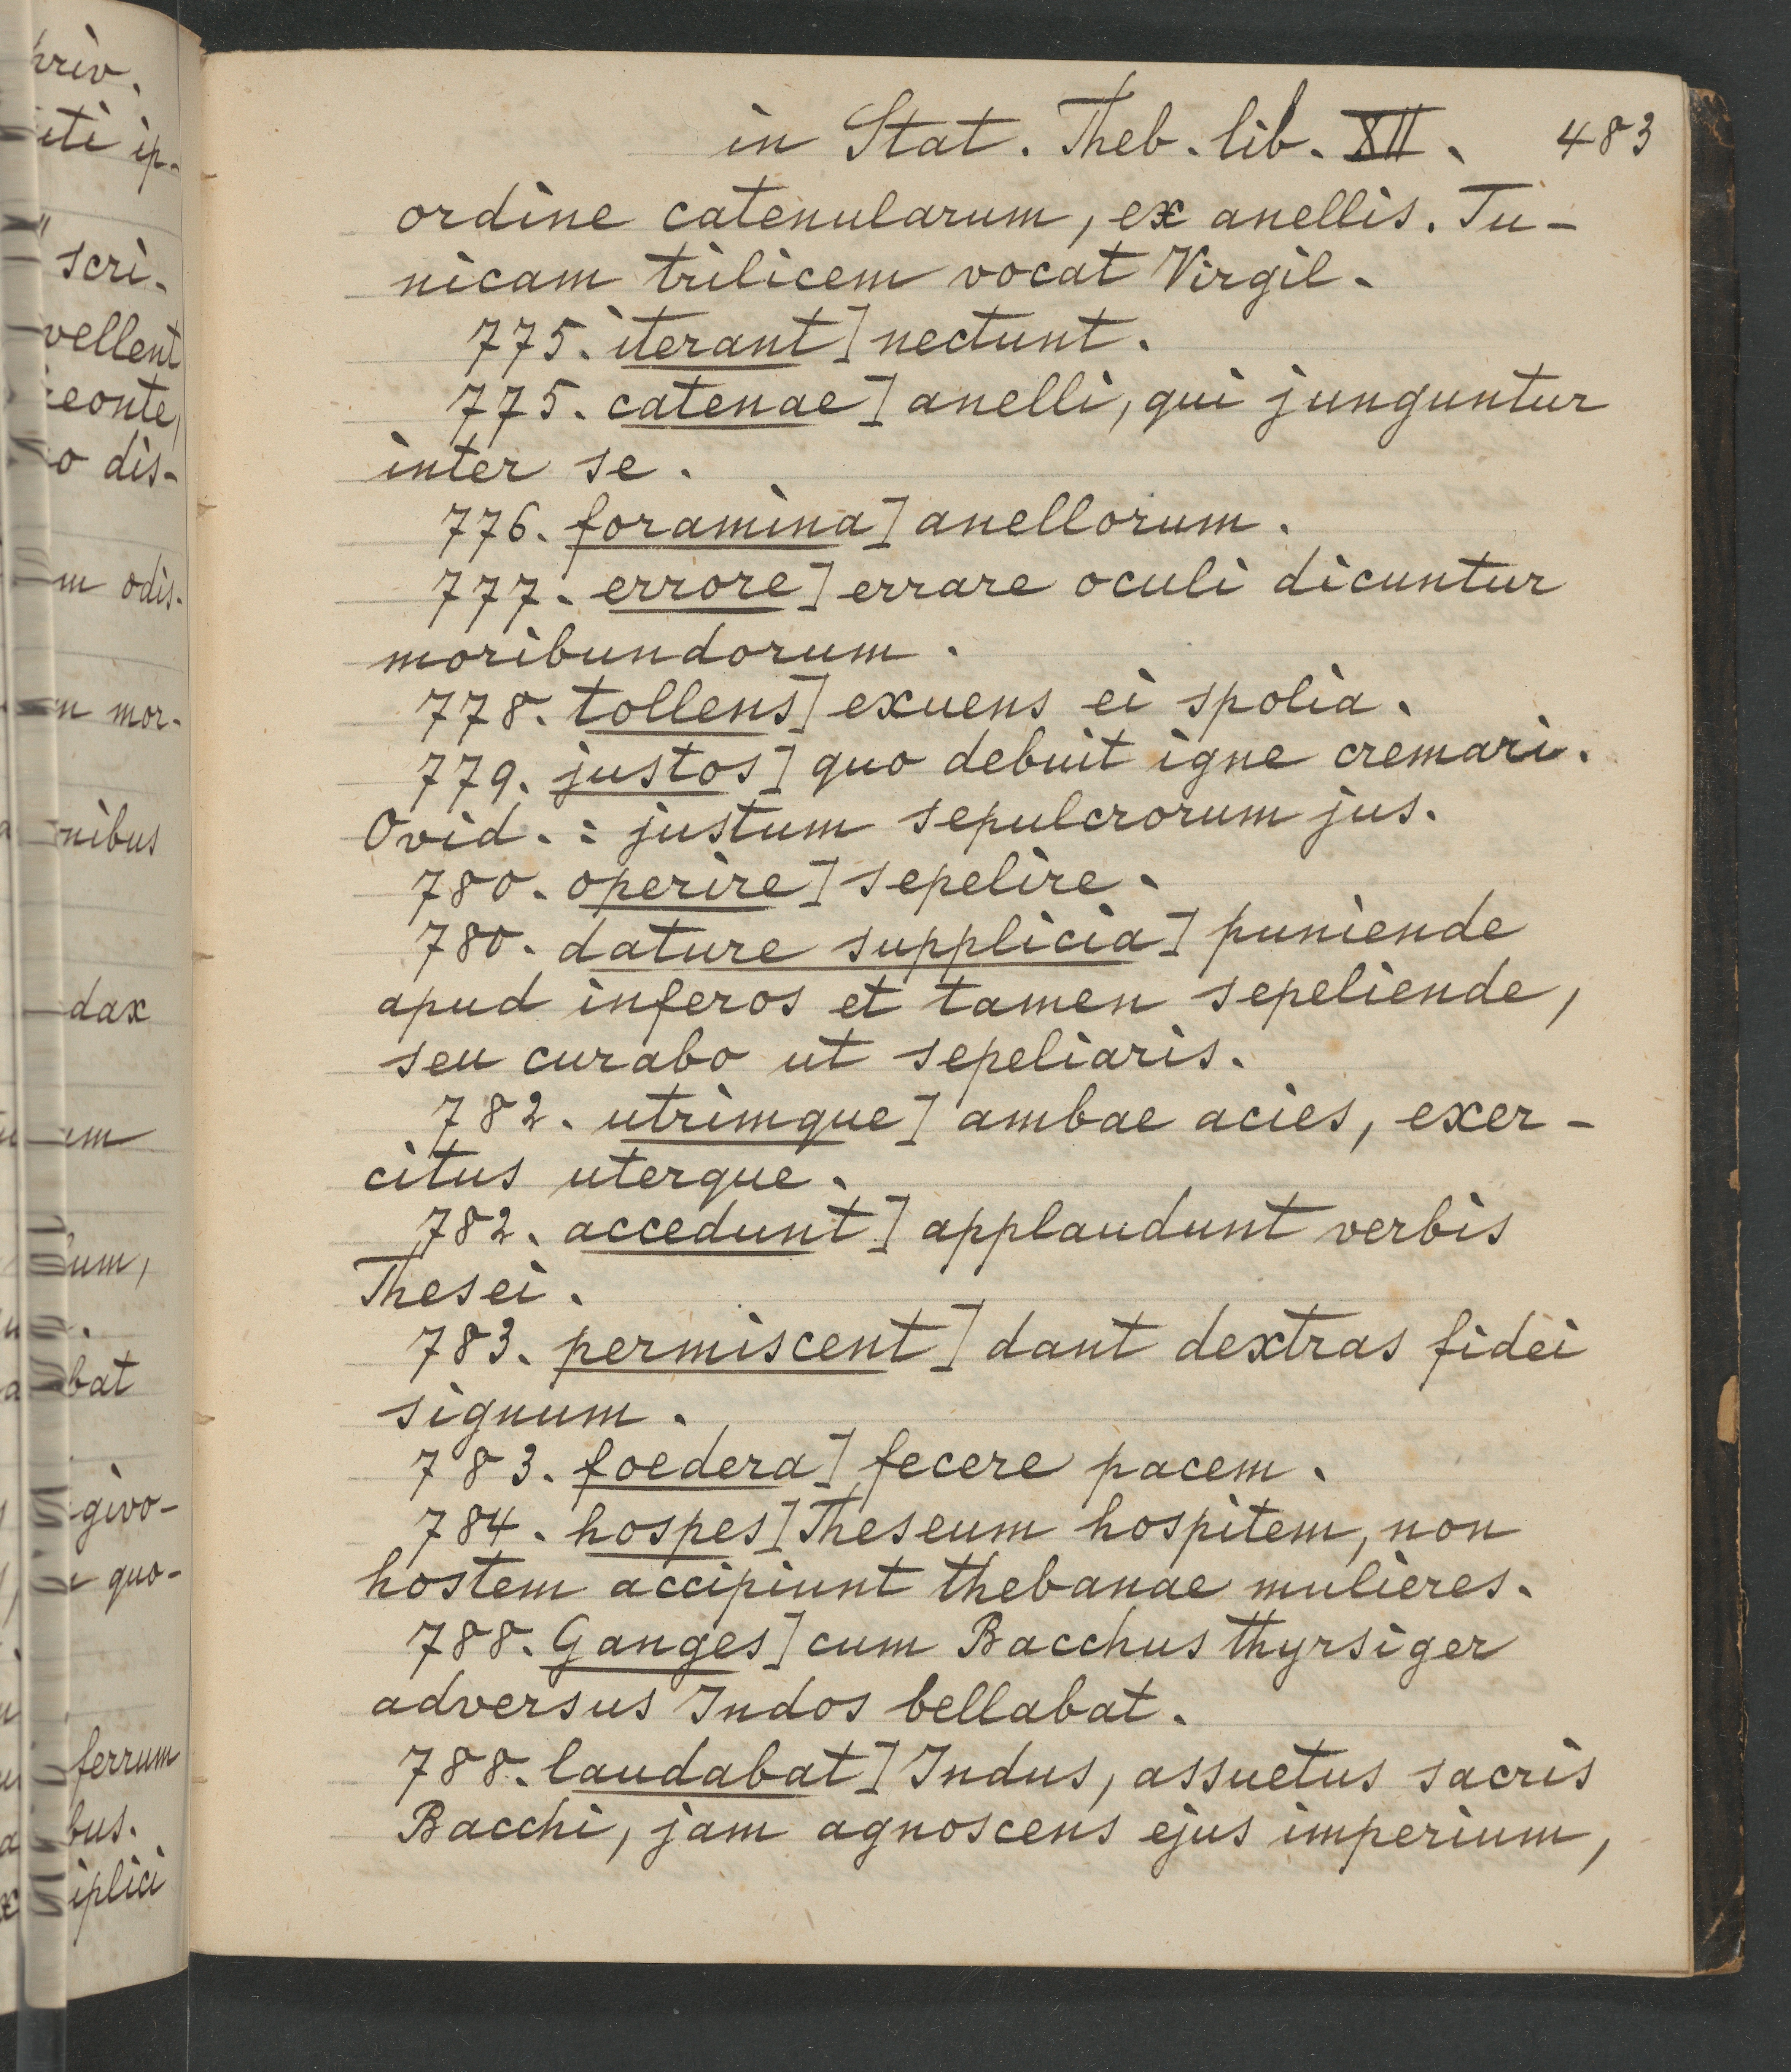 in Stat. Theb. lib. XII. 483
ordine catenularum, ex anellis. Tu-
nicam trilicem vocat Virgil.
775. iterant] nectunt.
775. catenae] anelli, qui junguntur
inter se.
776. foramina] anellorum.
777. errore] errare oculi dicuntur
moribundorum.
778. tollens] exuens ei spolia.
779. justos] quo debuit igne cremari.
Ovid. : justum sepulcrorum jus.
780. operire] sepelire.
780. dature supplicia] puniende
apud inferos et tamen sepeliende,
seu curabo ut sepeliaris.
782. utrimque] ambae acies, exer-
citus uterque.
782. accedunt] applaudunt verbis
Thesei.
783. permiscent] dant dextras fidei
signum.
783. foedera] fecere pacem.
784. hospes] Theseum hospitem, non
hostem accipiunt thebanae mulieres.
788. Ganges] cum Bacchus thyrsiger
adversus Indos bellabat.
788. laudabat] Indus, assuetus sacris
Bacchi, jam agnoscens ejus imperium,